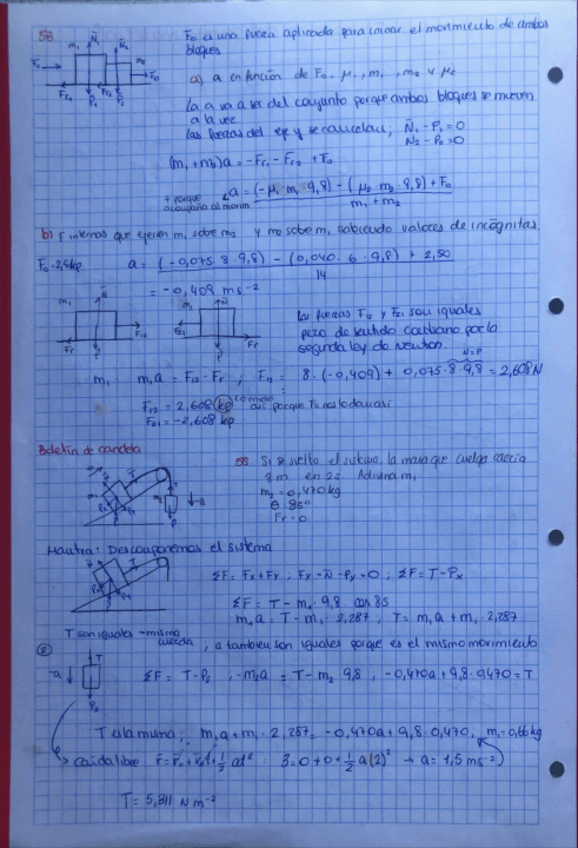 58
F₀ es una fuerza aplicada para iniciar el movimiento de ambos
bloques
a) a en función de F₀, μ₁, m₁, m₂ y μ₂
La a va a ser del conjunto porque ambos bloques se mueven
a la vez
las fuerzas del eje y se cancelan; N₁ - P₁ = 0
N₂ - P₂ = 0
(m₁ + m₂)a = -Fr₁ - Fr₂ + F₀
+ porque acompaña al movim.
a = (-μ₁·m₁·9,8) - (μ₂·m₂·9,8) + F₀
m₁ + m₂
b) F internas que ejercen m₁ sobre m₂ y m₂ sobre m₁ sabiendo valores de incógnitas
F₀ = 2,5kp
a = (-0,075·8·9,8) - (0,040·6·9,8) + 2,50
14
= -0,409 ms⁻²
las fuerzas F₁₂ y F₂₁ son iguales
pero de sentido contrario por la
segunda ley de newton.
N=P
m₁: m₁a = F₁₂ - Fr ; F₁₂ = 8·(-0,409) + 0,075·8·9,8 = 2,608 N
F₁₂ = 2,608 kp
así porque F₀ nos lo da así
F₂₁ = -2,608 kp
Boletín de candela
55. Si se suelta el sistema, la masa que cuelga caería
3m en 2s
m₂ = 0,470kg
θ = 85°
Fr = 0
Descomponemos el sistema
ΣF = Fx + Fy ; Fy = N - Py = 0 ; ΣF = T - Px
ΣF = T - m₁·9,8
m₁a = T - m₁·2,287 ; T = m₁a + m₁·2,287
T son iguales → misma
cuerda
; a también son iguales porque es el mismo movimiento
②
ΣF = T - P₂ ; -m₂a = T - m₂ 9,8 ; -0,470a + 9,8·0,470 = T
T es la misma; m₁a + m₁·2,287 = -0,470a + 9,8·0,470, m₁ = 0,66 kg
caída libre r = r₀ + v₀t + ½ at² : 3 = 0 + 0 + ½ a(2)² → a = 1,5 ms⁻²
T = 5,311 N m⁻²